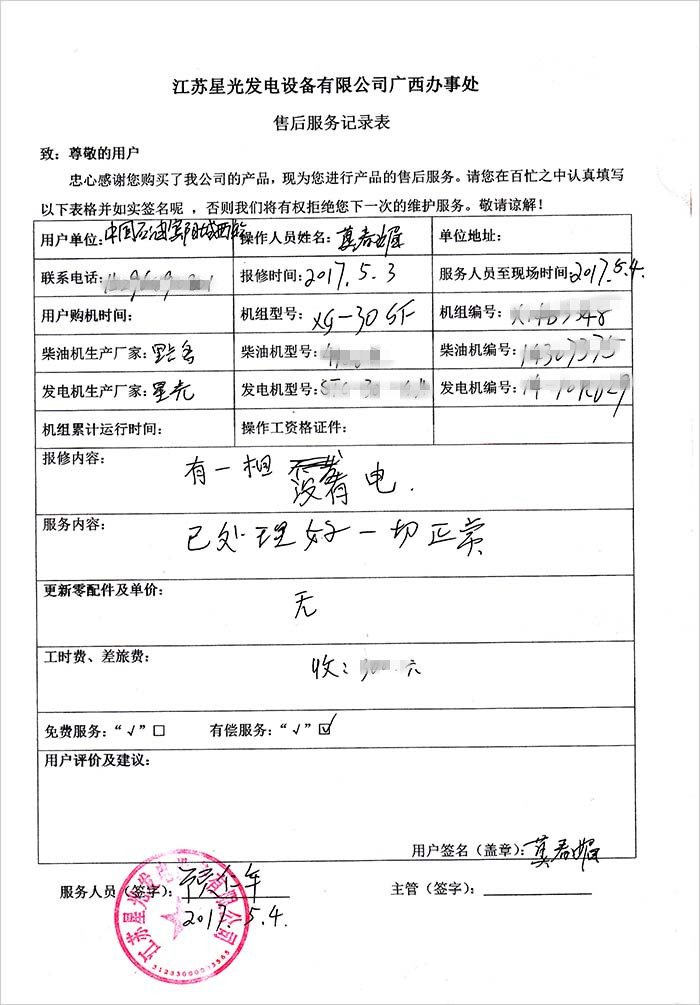 江苏星光发电设备有限公司广西办事处
售后服务记录表
致：尊敬的用户
忠心感谢您购买了我公司的产品，现为您进行产品的售后服务。请您在百忙之中认真填写
以下表格并如实签名呢 ，否则我们将有权拒绝您下一次的维护服务。敬请谅解！
用户单位：中国石油宾阳城西站 操作人员姓名： 单位地址：
联系电话： 报修时间：2017.5.3 服务人员至现场时间：2017.5.4.
用户购机时间： 机组型号：XG-30GF 机组编号：
柴油机生产厂家： 柴油机型号： 柴油机编号：
发电机生产厂家：星光 发电机型号： 发电机编号：
机组累计运行时间： 操作工资格证件：
报修内容：
有一相没有电.
服务内容：
已处理好一切正常
更新零配件及单价：
无
工时费、差旅费：
收： 元
免费服务：“√”□ 有偿服务：“√”☑
用户评价及建议：
用户签名（盖章）：
服务人员（签字）： 主管（签字）：
2017.5.4.
江苏星光发电设备有限公司